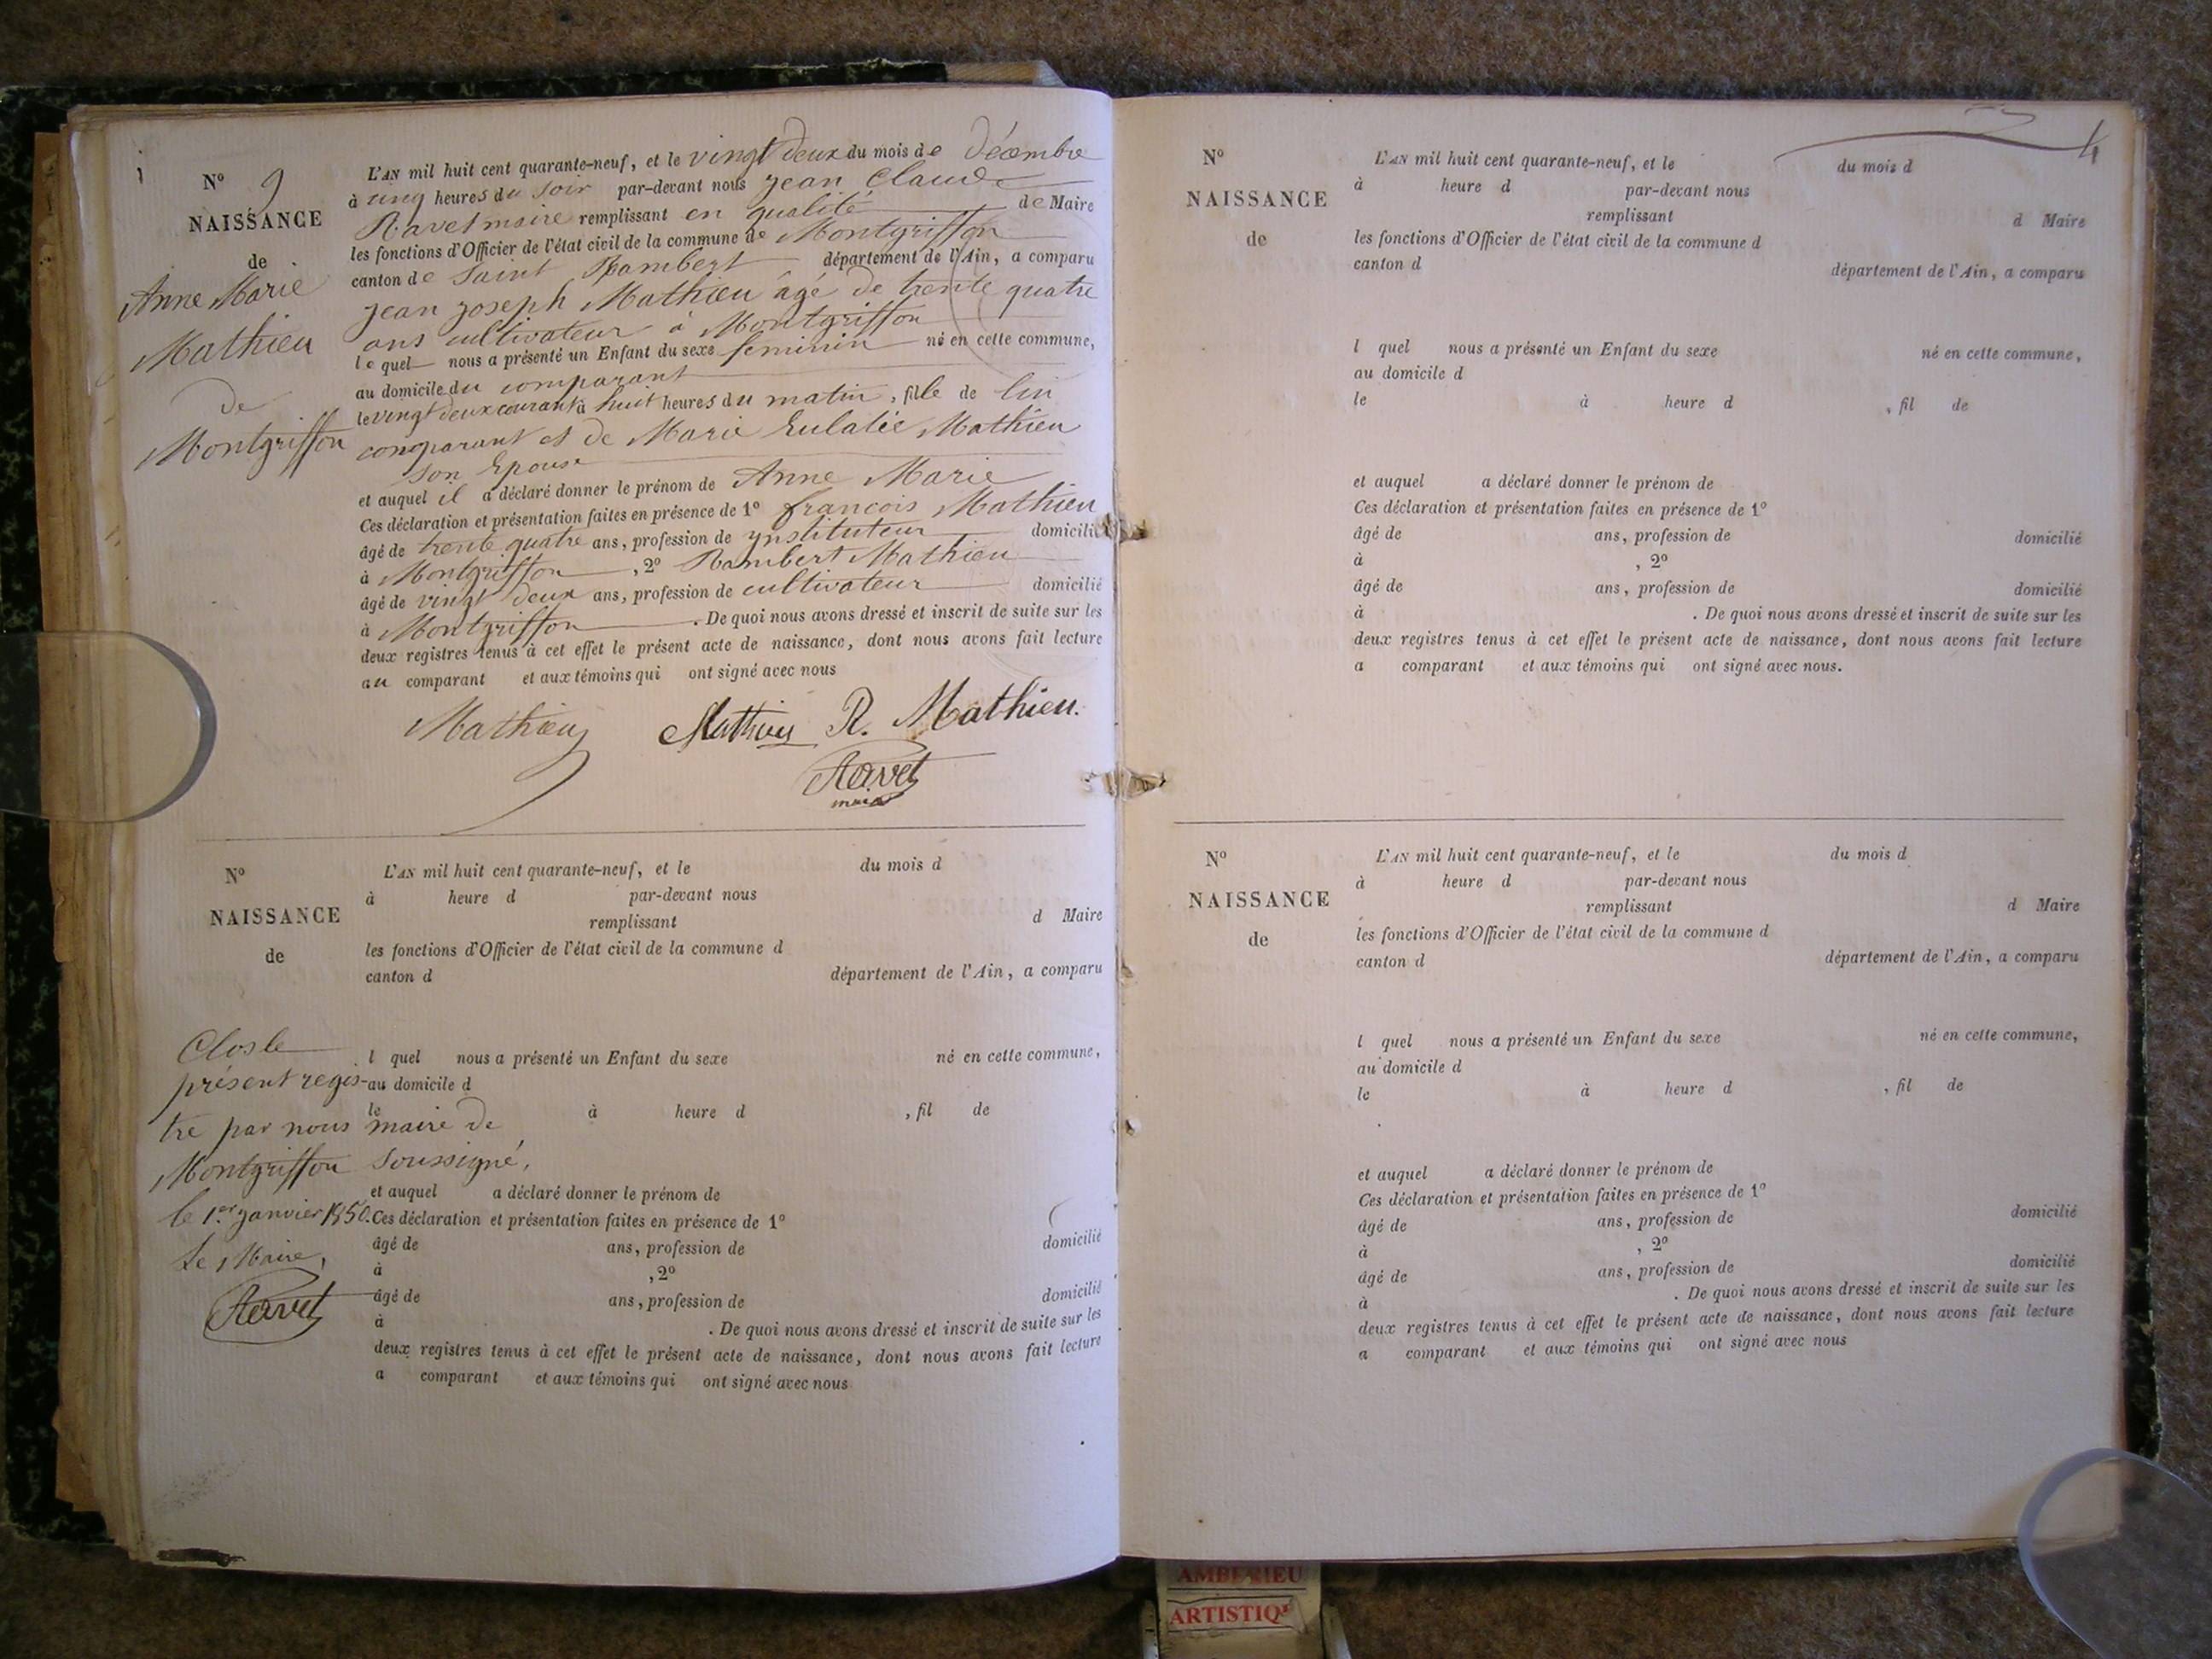 N° 9
NAISSANCE
de
Anne Marie
Mathieu
de
Montgriffon
L'AN mil huit cent quarante-neuf, et le vingt deux du mois de Décembre
à cinq heures du soir par-devant nous Jean Claude
Ravet maire remplissant en qualité de Maire
les fonctions d'Officier de l'état civil de la commune de Montgriffon
canton de Saint Rambert département de l'Ain, a comparu
Jean Joseph Mathieu âgé de trente quatre
ans cultivateur à Montgriffon
lequel nous a présenté un Enfant du sexe feminin né en cette commune,
au domicile du comparant
le vingt deux courant à huit heures du matin, fille de lui
comparant et de Marie Eulalie Mathieu
son Epouse
et auquel il a déclaré donner le prénom de Anne Marie
Ces déclaration et présentation faites en présence de 1° françois Mathieu
âgé de trente quatre ans, profession de ynstituteur domicilié
à Montgriffon, 2° Rambert Mathieu
âgé de vingt deux ans, profession de cultivateur domicilié
à Montgriffon. De quoi nous avons dressé et inscrit de suite sur les
deux registres tenus à cet effet le présent acte de naissance, dont nous avons fait lecture
au comparant et aux témoins qui ont signé avec nous
Mathieu Mathieu R. Mathieu.
Ravet
maire
N°
NAISSANCE
de
L'AN mil huit cent quarante-neuf, et le du mois d
à heure d par-devant nous
remplissant d Maire
les fonctions d'Officier de l'état civil de la commune d
canton d département de l'Ain, a comparu
l quel nous a présenté un Enfant du sexe né en cette commune,
au domicile d
le à heure d , fil de
et auquel a déclaré donner le prénom de
Ces déclaration et présentation faites en présence de 1°
âgé de ans, profession de domicilié
à , 2°
âgé de ans, profession de domicilié
à . De quoi nous avons dressé et inscrit de suite sur les
deux registres tenus à cet effet le présent acte de naissance, dont nous avons fait lecture
a comparant et aux témoins qui ont signé avec nous
Clos le
présent regis-
tre par nous maire de
Montgriffon soussigné,
le 1.er janvier 1850.
Le Maire,
Ravet
4
N°
NAISSANCE
de
L'AN mil huit cent quarante-neuf, et le du mois d
à heure d par-devant nous
remplissant d Maire
les fonctions d'Officier de l'état civil de la commune d
canton d département de l'Ain, a comparu
l quel nous a présenté un Enfant du sexe né en cette commune,
au domicile d
le à heure d , fil de
et auquel a déclaré donner le prénom de
Ces déclaration et présentation faites en présence de 1°
âgé de ans, profession de domicilié
à , 2°
âgé de ans, profession de domicilié
à . De quoi nous avons dressé et inscrit de suite sur les
deux registres tenus à cet effet le présent acte de naissance, dont nous avons fait lecture
a comparant et aux témoins qui ont signé avec nous.
N°
NAISSANCE
de
L'AN mil huit cent quarante-neuf, et le du mois d
à heure d par-devant nous
remplissant d Maire
les fonctions d'Officier de l'état civil de la commune d
canton d département de l'Ain, a comparu
l quel nous a présenté un Enfant du sexe né en cette commune,
au domicile d
le à heure d , fil de
et auquel a déclaré donner le prénom de
Ces déclaration et présentation faites en présence de 1°
âgé de ans, profession de domicilié
à , 2°
âgé de ans, profession de domicilié
à . De quoi nous avons dressé et inscrit de suite sur les
deux registres tenus à cet effet le présent acte de naissance, dont nous avons fait lecture
a comparant et aux témoins qui ont signé avec nous
AMBERIEU
ARTISTIQ